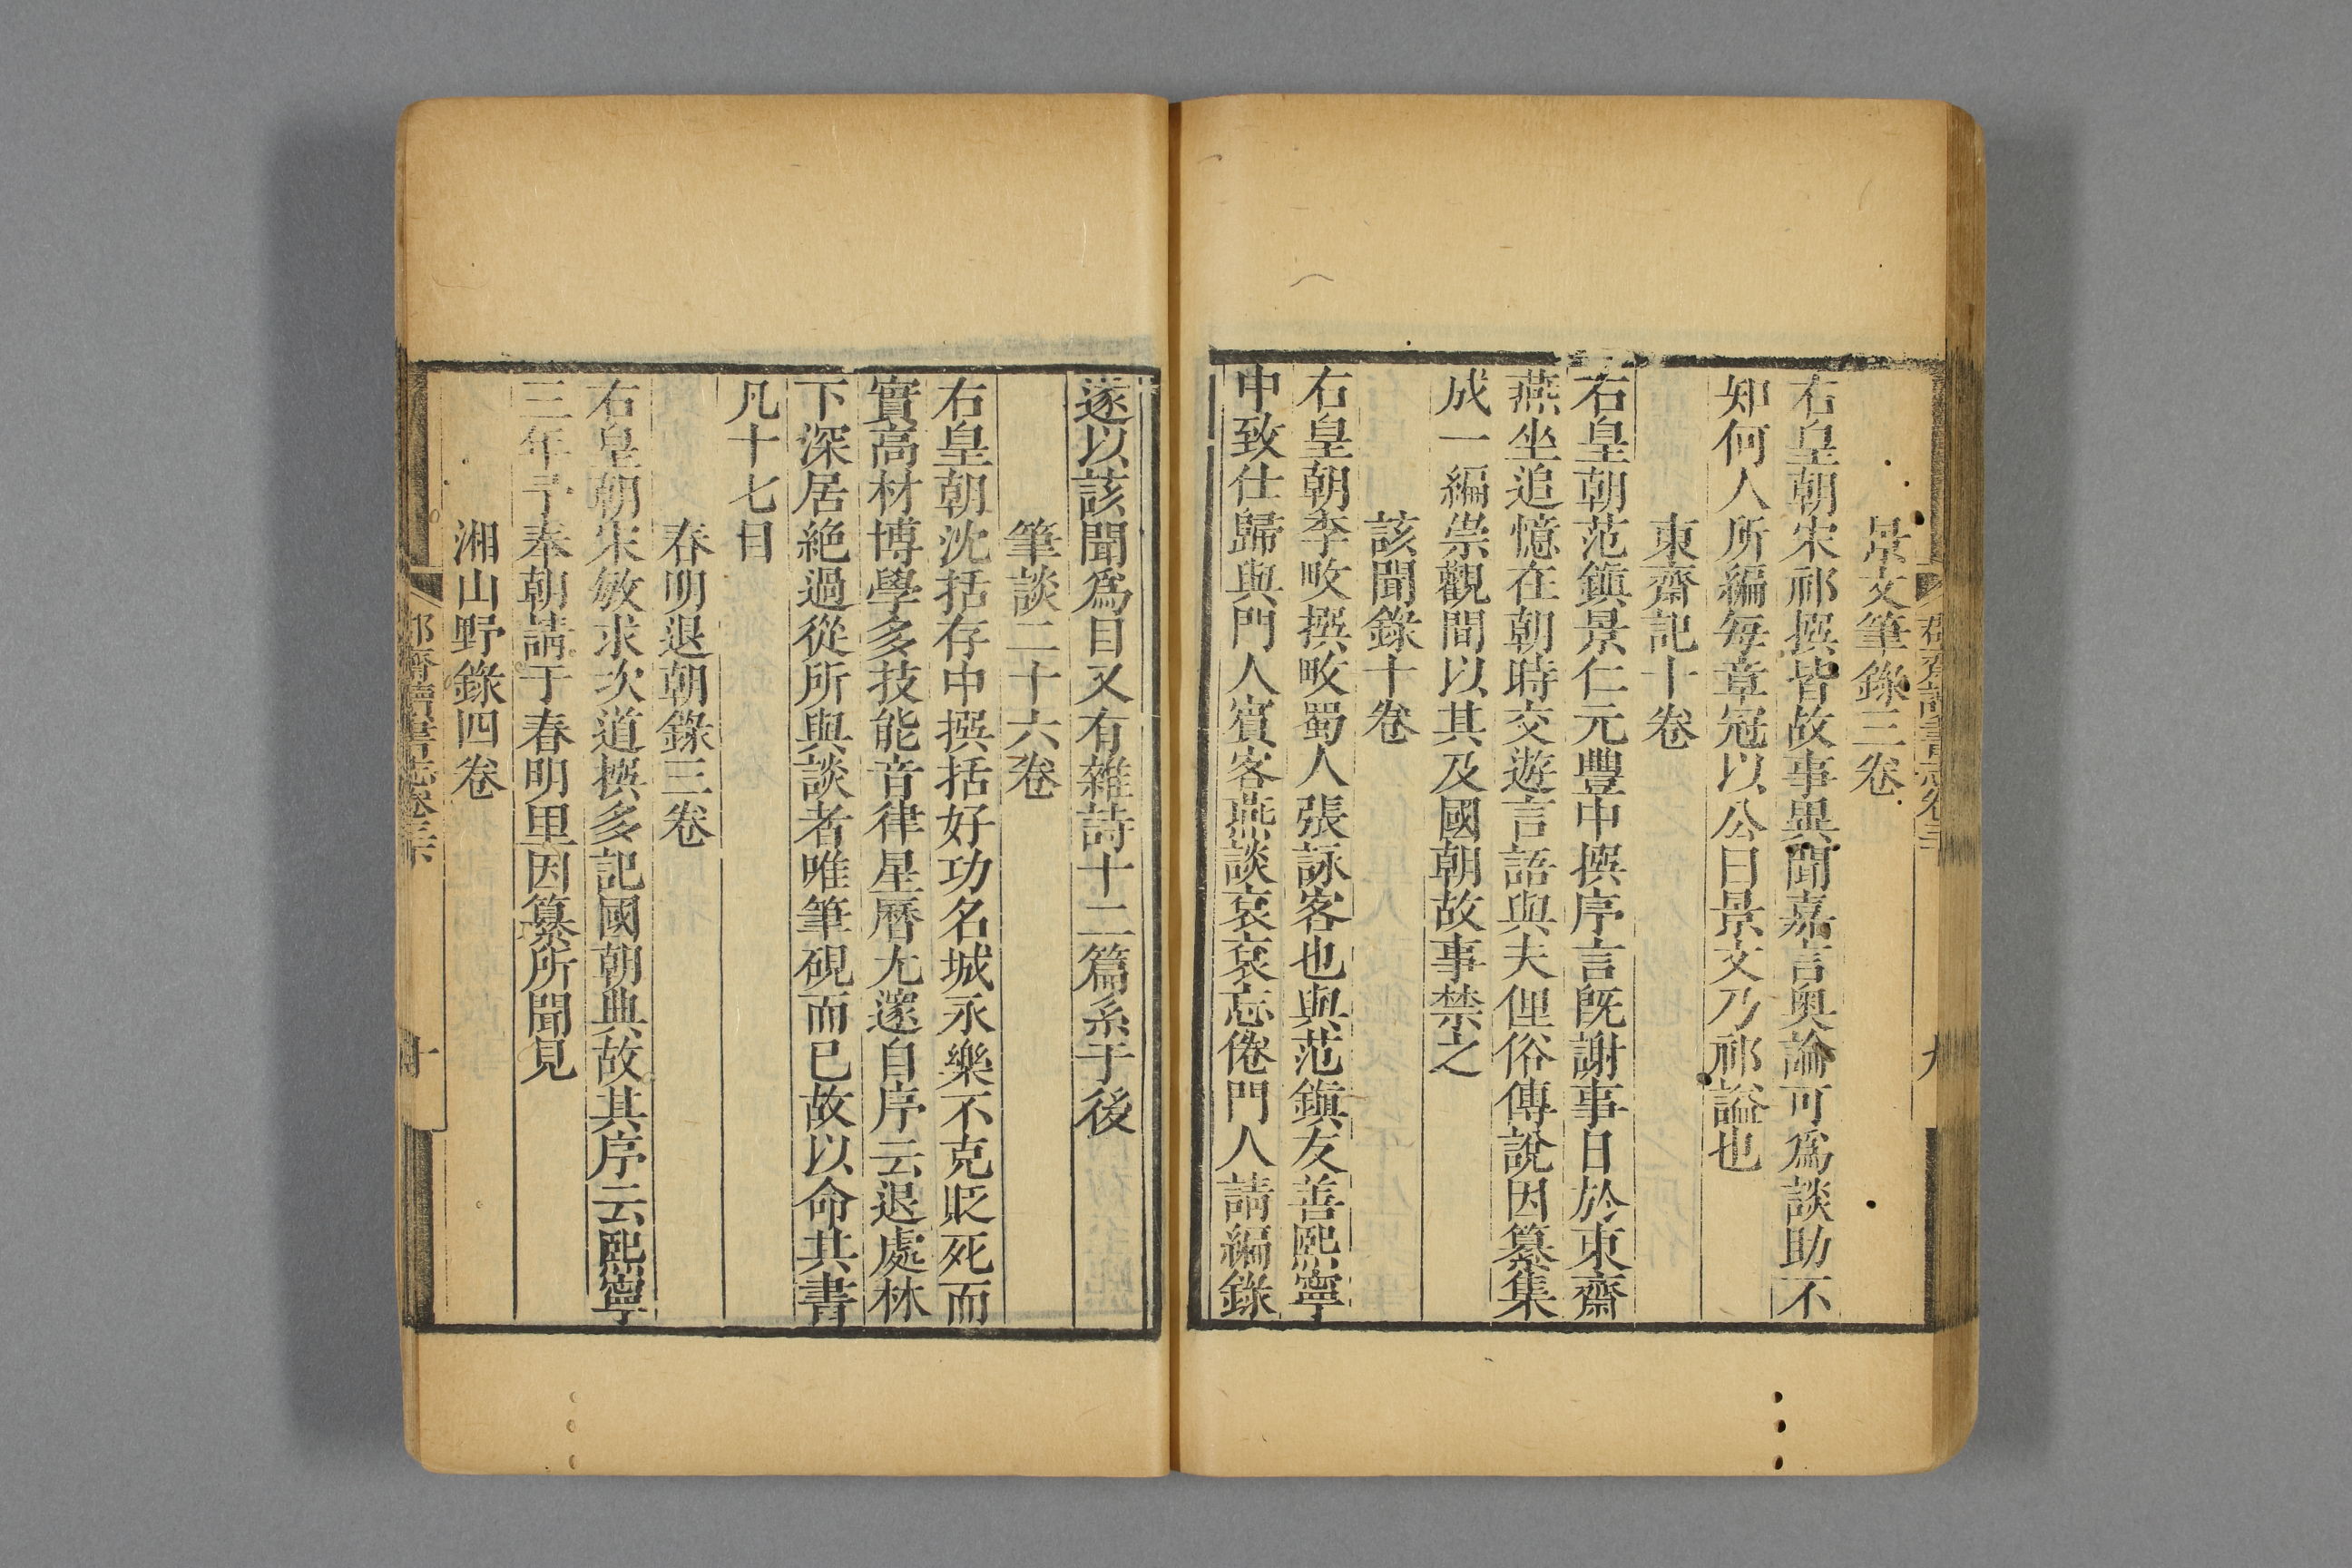 景文筆錄三卷
右皇朝宋祁撰皆故事異聞嘉言奥論可爲談助不
知何人所編每章冠以公曰景文乃祁謚也
東齋記十卷
右皇朝范鎭景仁元豐中撰序言旣謝事日於東齋
燕坐追憶在朝時交遊言語與夫俚俗傳說因纂集
成一編崇觀間以其及國朝故事禁之
該聞錄十卷
右皇朝李畋撰畋蜀人張詠客也與范鎭友善熙寧
中致仕歸與門人賓客燕談衮衮忘倦門人請編錄
遂以該聞爲目又有雜詩十二篇系于後
筆談二十六卷
右皇朝沈括存中撰括好功名城永樂不克貶死而
實高材博學多技能音律星曆尤邃自序云退處林
下深居絶過從所與談者唯筆硯而已故以命其書
凡十七目
春明退朝錄三卷
右皇朝宋敏求次道撰多記國朝典故其序云熙寧
三年予奉朝請于春明里因纂所聞見
湘山野錄四卷
郡齋讀書志卷三下
十